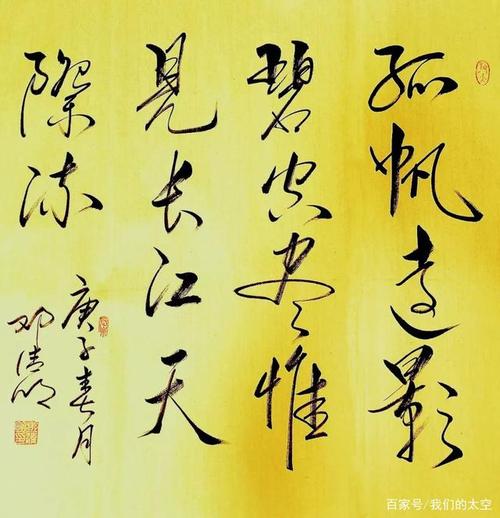 孤帆遠影
碧空尽惟
見长江天
際流
庚子春月
邓清明
百家号/我们的太空